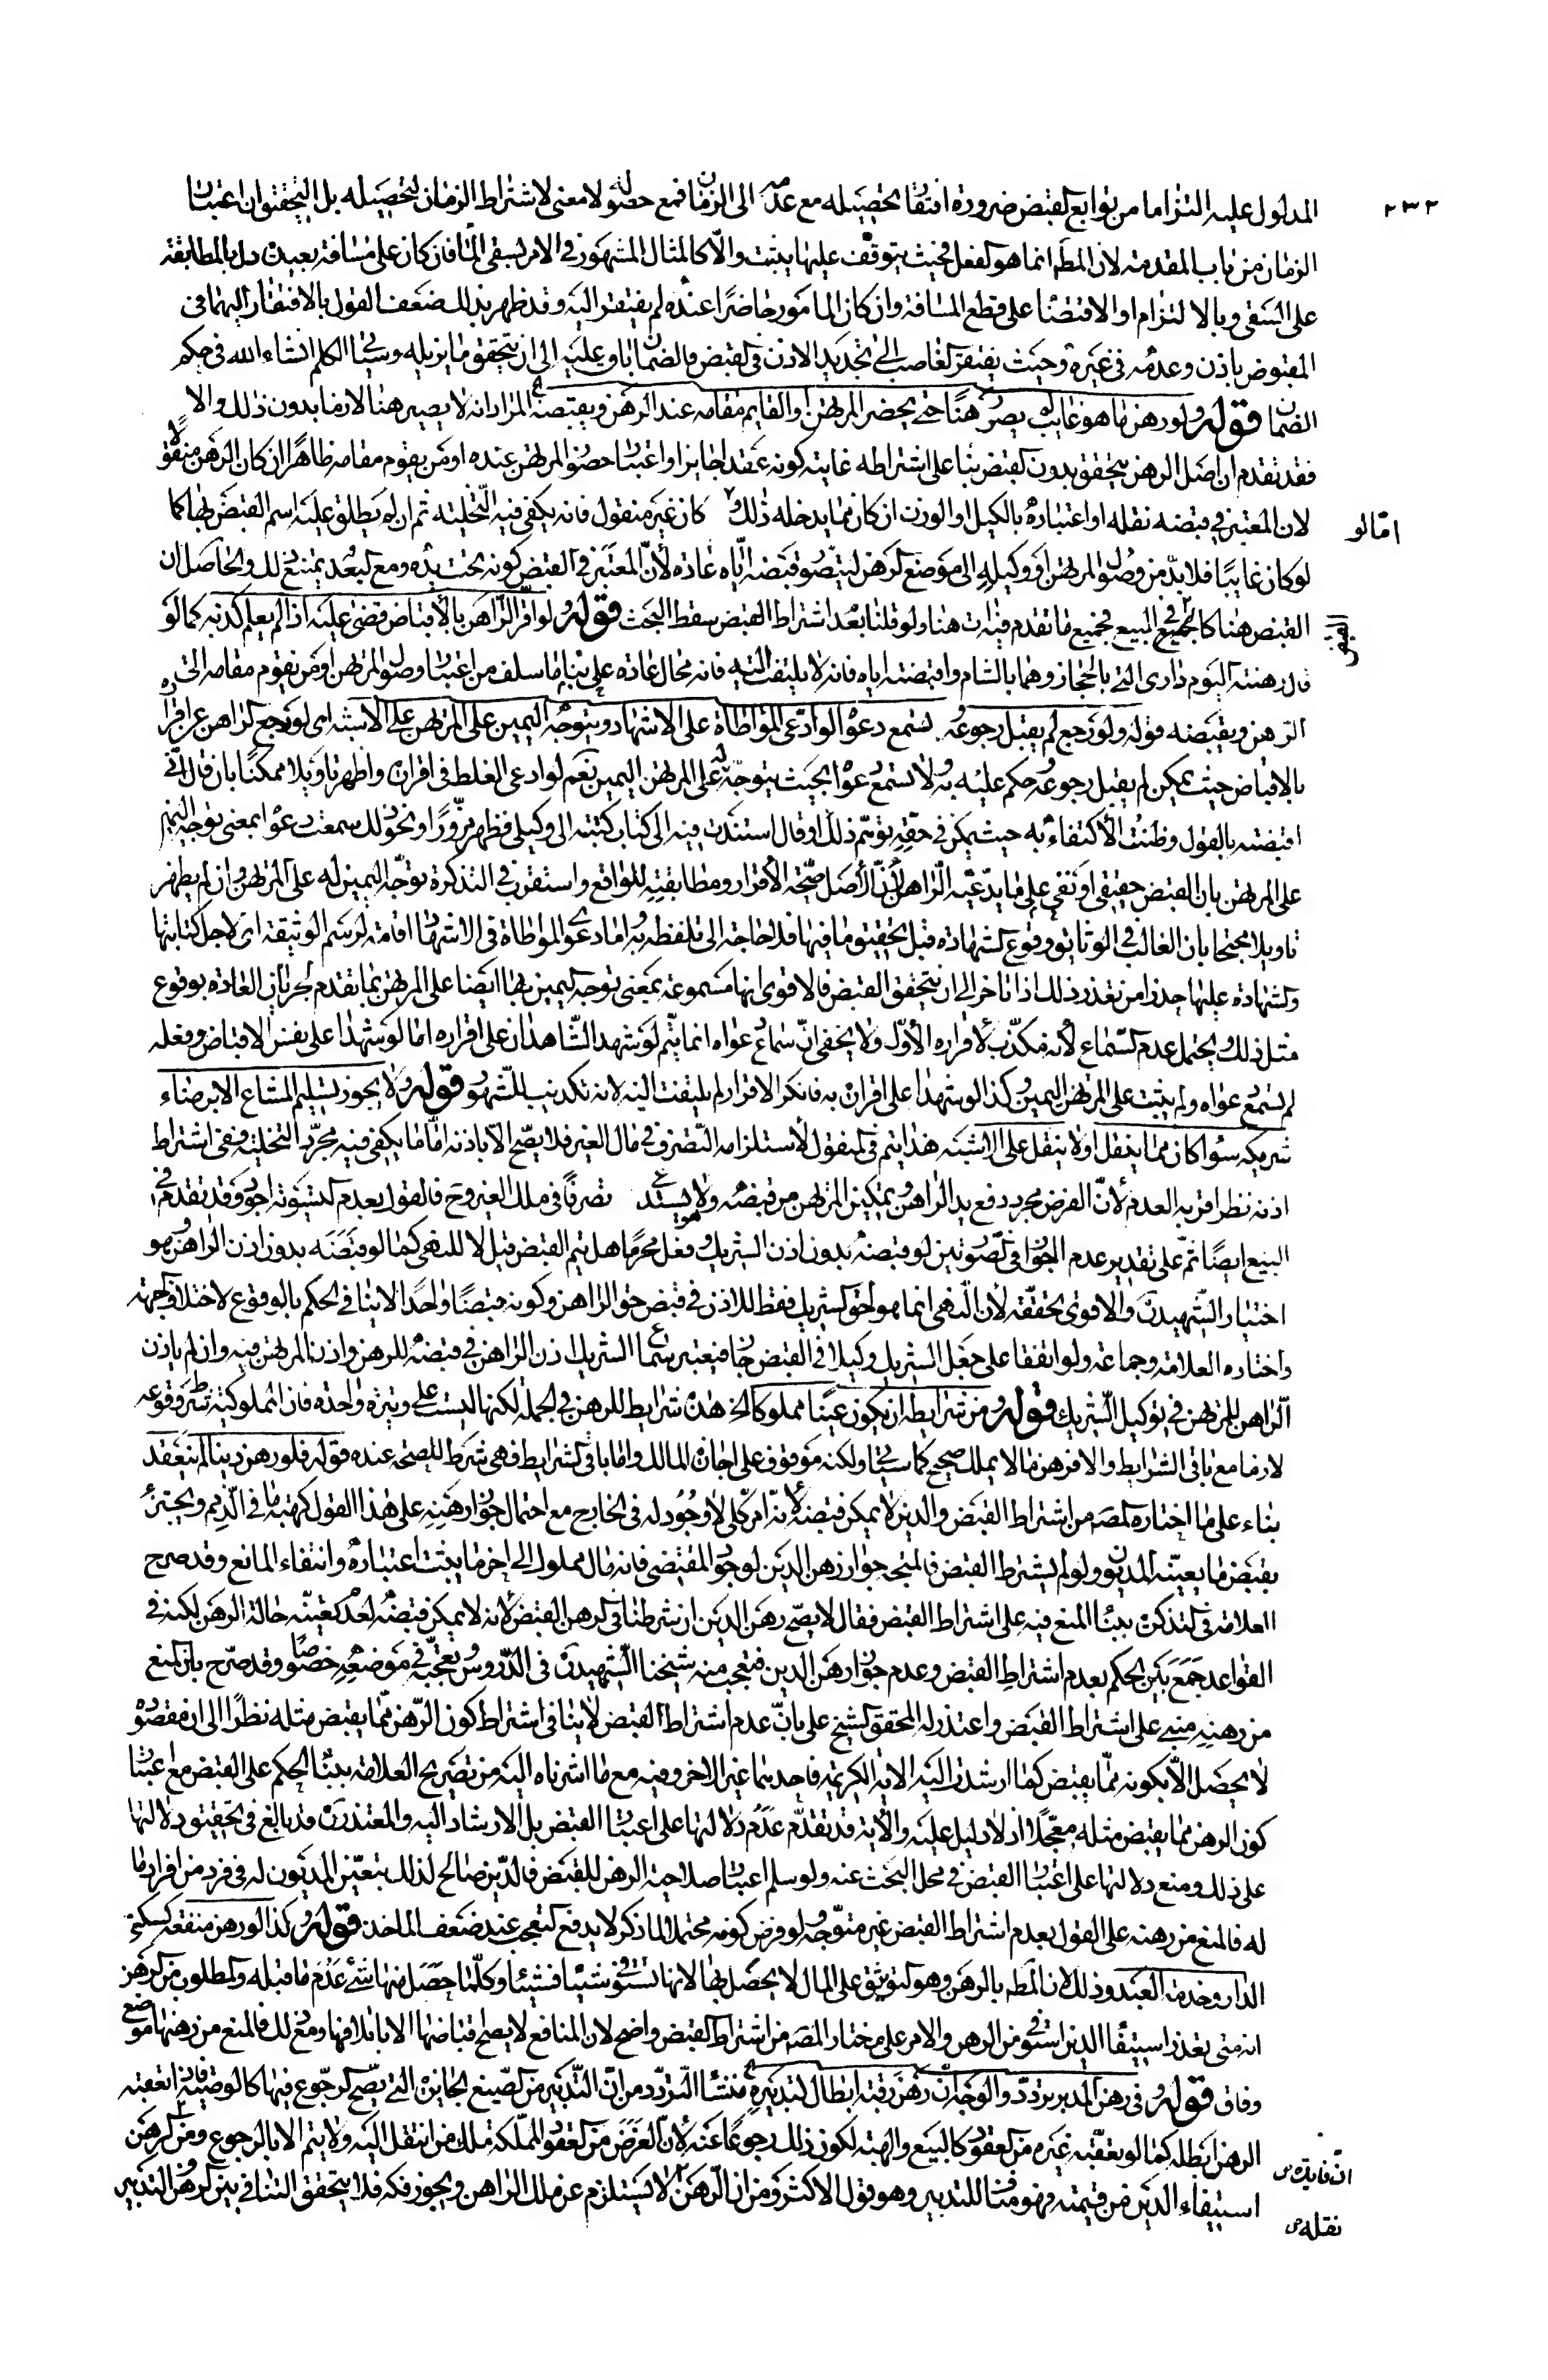 ٢٣٢
المدلول عليه التزاما من توابع القبض ضرورة افتقار تحصيله مع عدمه الى الزمان فمع حصوله لا معنى لاشتراط الزمان لتحصيله بل التحقيق ان اعتبار
الزمان من باب المقدمة لان المطم انما هو الفعل فحيث يتوقف عليها يثبت والا كالمثال المشهور في الامر بسقي الماء فان كان على مسافة بعيدة دل بالمطابقة
على السقي وبالالتزام او الاقتضاء على قطع المسافة وان كان المامور حاضرا عنده لم يفتقر اليه وقد ظهر بذلك ضعف القول بالافتقار اليهما في
المقبوض باذن وعدمه في غيره وحيث يفتقر الغاصب الى تجديد الاذن في القبض فالضمان باق عليه الى ان يتحقق ما يزيله وسياتي الكلام انشاء الله في حكم
الضمان قوله ولو رهن ما هو غايب لم يصر رهنا حتى يحضر المرتهن او القايم مقامه عند الرهن ويقبضه المراد انه لا يصير رهنا لازما بدون ذلك والا
فقد تقدم ان اصل الرهن يتحقق بدون القبض بناء على اشتراطه غايته كونه عقدا جايزا واعتبار حضور المرتهن عنده او من يقوم مقامه ظاهرا ان كان الرهن منقولا
لان المعتبر في قبضه نقله او اعتباره بالكيل او الوزن ان كان مما يدخله ذلك و كان غير منقول فانه يكفي فيه التخلية ثم ان لم يطلق عليه اسم القبض بها كما
امّا لو
لو كان غايبا فلا بد من وصول المرتهن او وكيله الى موضع الرهن ليتصور قبضه اياه عادة لان المعتبر في القبض كونه تحت يده ومع البعد يمتنع ذلك والحاصل ان
القبض هنا كالقبض في البيع فجميع ما تقدم فيه ات هنا ولو قلنا بعدم اشتراط القبض سقط البحث قوله ولو اقر الراهن بالاقباض قضى عليه اذا لم يعلم كذبه كما لو
القبض
قال رهنته اليوم داري التي بالحجاز وهما بالشام واقبضته اياه فانه لا يلتفت اليه فانه محال عادة على بناء ما سلف من اعتبار وصول المرتهن او من يقوم مقامه الى
الرهن ويقبضه قوله ولو رجع لم يقبل رجوعه وتسمع دعواه لو ادعى المواطاة على الاشهاد ويتوجه اليمين على المرتهن على الاشبه اي لو رجع الراهن عن اقراره
بالاقباض حيث يمكن لم يقبل رجوعه وحكم عليه به ولا تسمع دعواه بحيث يتوجه له على المرتهن اليمين نعم لو ادعى الغلط في اقراره واظهر تاويلا ممكنا بان قال اني
اقبضته بالقول وظننت الاكتفاء به حيث يمكن في حقه توهم ذلك او قال استندت فيه الى كتاب كتبه الى وكيلي فظهر مزورا ونحو ذلك سمعت دعواه بمعنى توجه اليمين
على المرتهن بان القبض حقيقي او نفي على ما يدعيه الراهن لان الاصل صحة الاقرار ومطابقته للواقع واستقرب في التذكرة توجه اليمين له على المرتهن وان لم يظهر
تاويلا محتجا بان الغالب في الوثايق وقوع الشهادة قبل تحقيق ما فيها فلا حاجة الى تلفظه به اما دعوى المواطاة في الاشهاد اقامة لرسم الوثيقة اي لاجل كتابتها
والشهادة عليها حذرا من تعذر ذلك اذا تاخر الى ان يتحقق القبض فالاقوى انها مسموعة بمعنى توجه اليمين بها ايضا على المرتهن بما تقدم لجريان العادة بوقوع
مثل ذلك ويحتمل عدم السماع لانه مكذب لاقراره الاول ولا يخفى ان سماع دعواه انما يتم لو شهد الشاهدان على اقراره اما لو شهدا على نفس الاقباض وفعله
لم تسمع دعواه ولم يثبت على المرتهن اليمين وكذا لو شهدا على اقراره به فانكر الاقرار لم يلتفت اليه لانه تكذيب للشهود قوله ولا يجوز تسليم المشاع الا برضاء
شريكه سواء كان مما ينقل او لا ينقل على الاشبه هذا يتم في المنقول لاستلزامه التصرف في مال الغير فلا يصح الا باذنه اما ما يكفي فيه مجرد التخلية ففي اشتراط
اذنه نظر اقربه العدم لان الغرض مجرد رفع يد الراهن وتمكين المرتهن من قبضه ولا يستدعي تصرفا في ملك الغير وح فالقول بعدم التسوية اجود وقد تقدم في
البيع ايضا ثم على تقدير عدم الجواز في الصورتين لو قبضه بدون اذن الشريك وفعل محرما هل يتم القبض قيل لا للنهي كما لو قبضه بدون اذن الراهن وهو
اختيار الشهيد ره والاقوى تحققه لان النهي انما هو لحق الشريك فقط للاذن في قبض حق الراهن وكونه قبضا واحدا لا ينافي الحكم بالوقوع لاختلاف الجهة
واختاره العلامة وجماعة ولو اتفقا على جعل الشريك وكيلا في القبض جاز فيعتبر سماع الشريك اذن الراهن في قبضه للرهن واذن المرتهن فيه وان لم ياذن
الراهن للمرتهن في توكيل الشريك قوله ومن شرايطه ان يكون عينا مملوكا الخ هذه شرايط للرهن في الجملة لكنها ليست على وتيرة واحدة فان المملوكية شرط وقوعه
لازما مع باقي الشرايط والا فرهن ما لا يملك صحيح كما سياتي ولكنه موقوف على اجازة المالك واما باقي الشرايط فهي شرط للصحة عنده قوله فلو رهن دينا لم ينعقد
بناء على ما اختاره المصه من اشتراط القبض والدين لا يمكن قبضه لانه امر كلي لا وجود له في الخارج مع احتمال جواز رهنه على هذا القول كهبة ما في الذمم ويجتزئ
بقبض ما يعينه المديون ولو لم يشترط القبض فالمتجه جواز رهن الدين لوجود المقتضي فانه مال مملوك الى اخر ما يثبت اعتباره وانتفاء المانع وقد صرح
العلامة في التذكرة ببناء المنع فيه على اشتراط القبض فقال لا يصح رهن الدين ان شرطنا في الرهن القبض لانه لا يمكن قبضه لعدم تعينه حالة الرهن لكنه في
القواعد جمع بين الحكم بعدم اشتراط القبض وعدم جواز رهن الدين فتعجب منه شيخنا الشهيد ره في الدروس وتعجبه في موضعه خصوصا وقد صرح بان المنع
من رهنه مبني على اشتراط القبض واعتذر له المحقق الشيخ علي بان عدم اشتراط القبض لا ينافي اشتراط كون الرهن مما يقبض مثله نظرا الى ان مقصوده
لا يحصل الا بكونه مما يقبض كما ارشدت اليه الاية الكريمة فاحدهما غير الاخر وفيه مع ما اشرناه اليه من تصريح العلامة ببناء الحكم على القبض مع اعتبار
كون الرهن مما يقبض مثله معجلا اذ لا دليل عليه والاية قد تقدم عدم دلالتها على اعتبار القبض بل الارشاد اليه والمعتذر ره قد بالغ في تحقيق دلالتها
على ذلك ومنع دلالتها على اعتبار القبض في محل البحث عنه ولو سلم اعتبار صلاحية الرهن للقبض فالدين صالح لذلك بتعيين المديون له في فرد من افراد ما
له فالمنع من رهنه على القول بعدم اشتراط القبض غير متوجه ولو فرض كونه محتملا لما ذكر لا يدفع التعجب عند ضعف الماخذ قوله وكذا لو رهن منفعة كسكنى
الدار وخدمة العبد وذلك لان المطم بالرهن وهو التوثق على المال لا يحصل بها لانها تستوفى شيئا فشيئا وكلما حصل منها شئ عدم ما قبله والمطلوب من الرهن
انه متى تعذر استيفاء الدين استوفي من الرهن والامر على مختار المصه من اشتراط القبض واضح لان المنافع لا يصح اقباضها الا باتلافها ومع ذلك فالمنع من رهنها موضع
وفاق قوله وفي رهن المدبر تردد والوجه ان رهن رقبته ابطال لتدبيره منشا التردد من ان التدبير من الصيغ الجايزة التي يصح الرجوع فيها كالوصية فاذا تعقبه
الرهن ابطله كما لو تعقبه غيره من العقود كالبيع والهبة لكون ذلك رجوعا عنه لان الغرض من العقود المملكة ملك من انتقل اليه ولا يتم الا بالرجوع ومن الرهن
انّ فايدة ص
استيفاء الدين من قيمته فهو مناف للتدبير وهو قول الاكثر ومن ان الرهن لا يستلزم عن ملك الراهن ويجوز فكه فلا يتحقق التنافي بين الرهن والتدبير
نقله ص